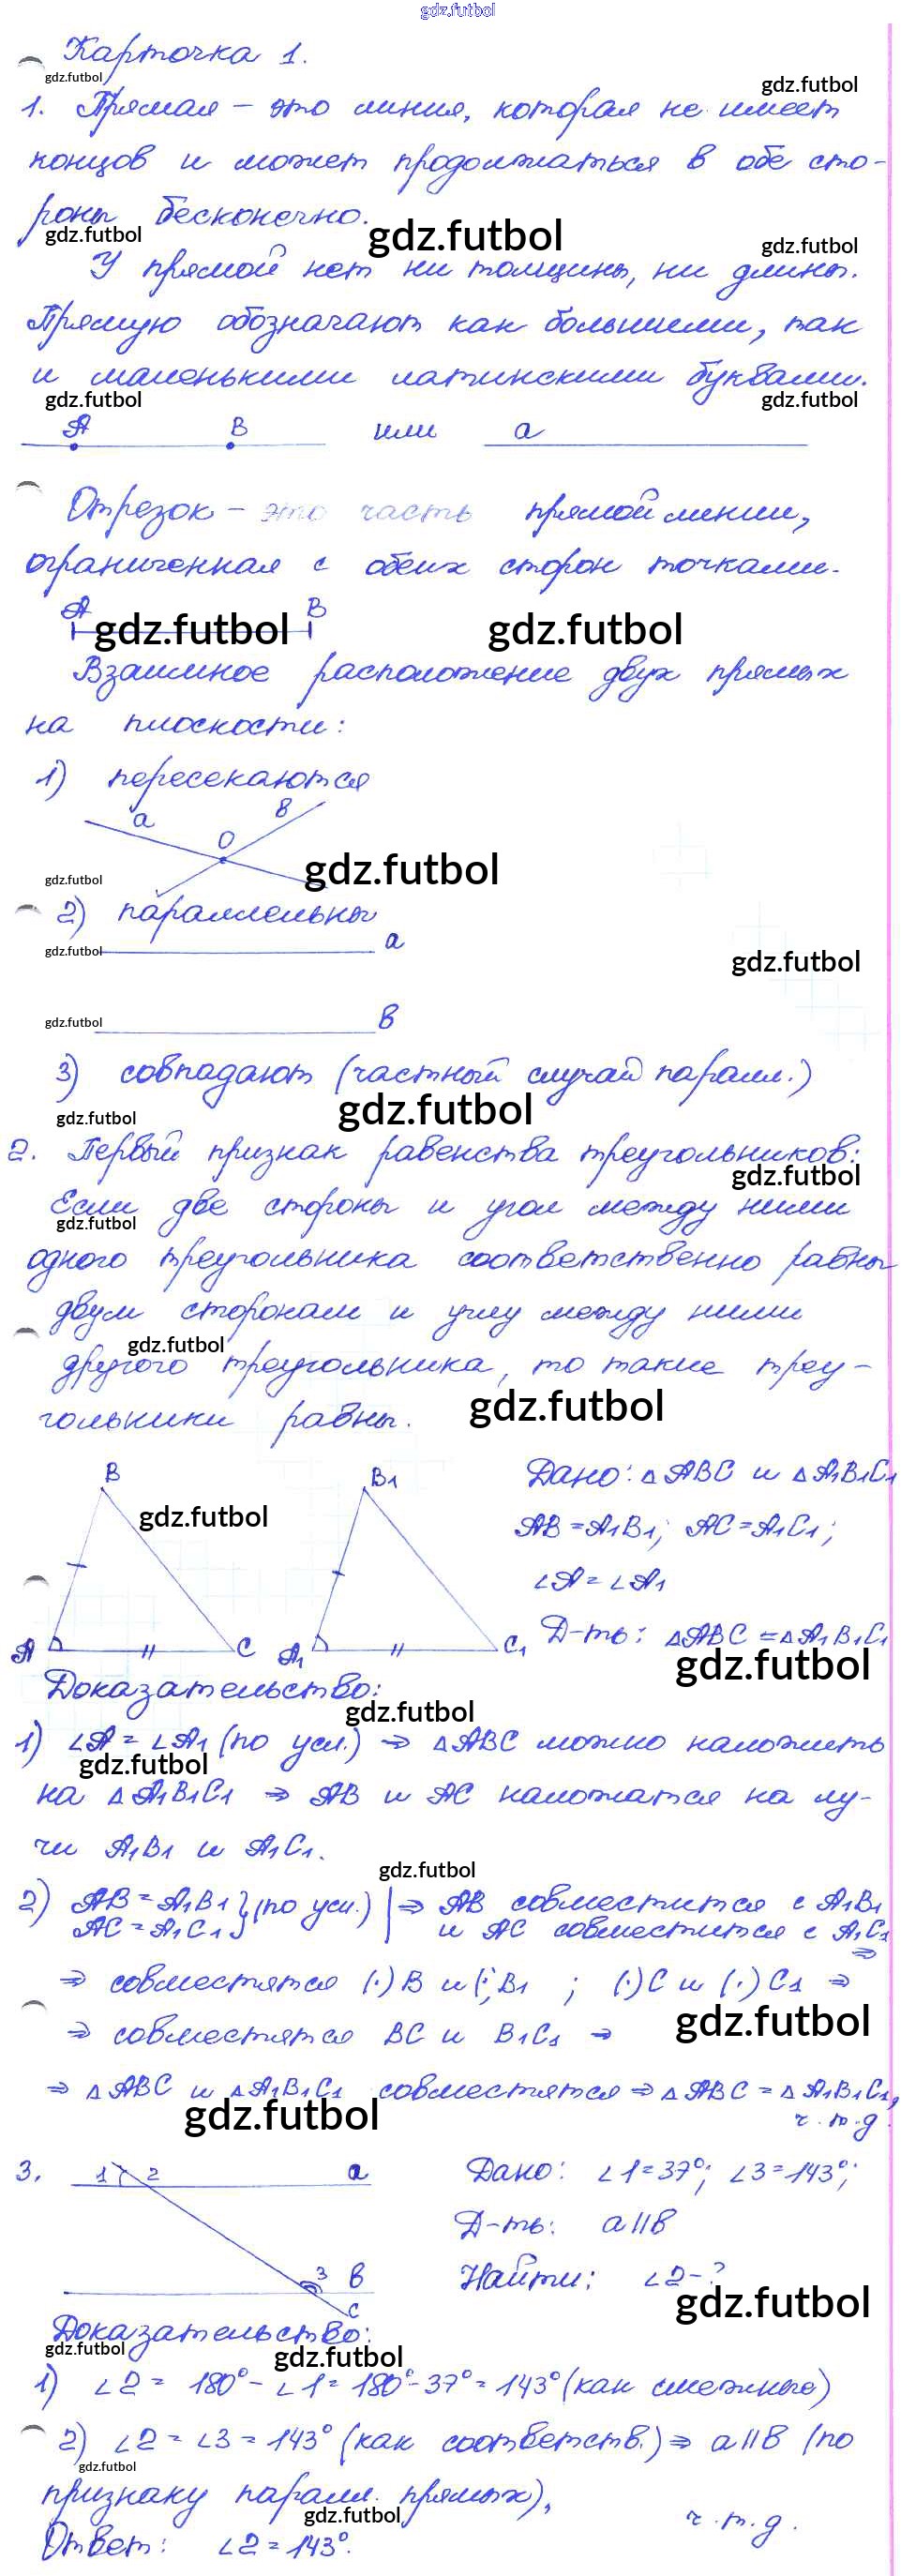 gdz.futbol
Карточка 1.
gdz.futbol
gdz.futbol
1. Прямая – это линия, которая не имеет
концов и может продолжаться в обе сто-
роны бесконечно.
gdz.futbol
gdz.futbol
gdz.futbol
У прямой нет ни толщины, ни длины.
Прямую обозначают как большими, так
и маленькими латинскими буквами.
gdz.futbol
gdz.futbol
A B или a
Отрезок – это часть прямой линии,
ограниченная с обеих сторон точками.
A B
gdz.futbol
gdz.futbol
Взаимное расположение двух прямых
на плоскости:
1) пересекаются
a O в
gdz.futbol
gdz.futbol
2) параллельны
a
gdz.futbol
gdz.futbol
в
gdz.futbol
3) совпадают (частный случай паралл.)
gdz.futbol
gdz.futbol
2. Первый признак равенства треугольников:
gdz.futbol
Если две стороны и угол между ними
gdz.futbol
одного треугольника соответственно равны
двум сторонам и углу между ними
gdz.futbol
другого треугольника, то такие треу-
гольники равны.
gdz.futbol
B B1
A C A1 C1
gdz.futbol
Дано: △ABC и △A1B1C1
AB = A1B1; AC = A1C1;
∠A = ∠A1
Д-ть: △ABC = △A1B1C1
gdz.futbol
Доказательство:
gdz.futbol
1) ∠A = ∠A1 (по усл.) ⇒ △ABC можно наложить
gdz.futbol
на △A1B1C1 ⇒ AB и AC наложатся на лу-
чи A1B1 и A1C1.
gdz.futbol
2) AB = A1B1 } (по усл.) | ⇒ AB совместится с A1B1
AC = A1C1 и AC совместится с A1C1 ⇒
⇒ совместятся (·) B и (·) B1 ; (·) C и (·) C1 ⇒
gdz.futbol
⇒ совместятся BC и B1C1 ⇒
⇒ △ABC и △A1B1C1 совместятся ⇒ △ABC = △A1B1C1,
ч.т.д.
gdz.futbol
3. 1 2 a
3 в
c
Дано: ∠1 = 37°; ∠3 = 143°;
Д-ть: a || в
Найти: ∠2 - ?
gdz.futbol
Доказательство:
gdz.futbol
gdz.futbol
1) ∠2 = 180° - ∠1 = 180° - 37° = 143° (как смежные)
2) ∠2 = ∠3 = 143° (как соответств.) ⇒ a || в (по
gdz.futbol
признаку паралл. прямых),
gdz.futbol
ч.т.д.
Ответ: ∠2 = 143°.